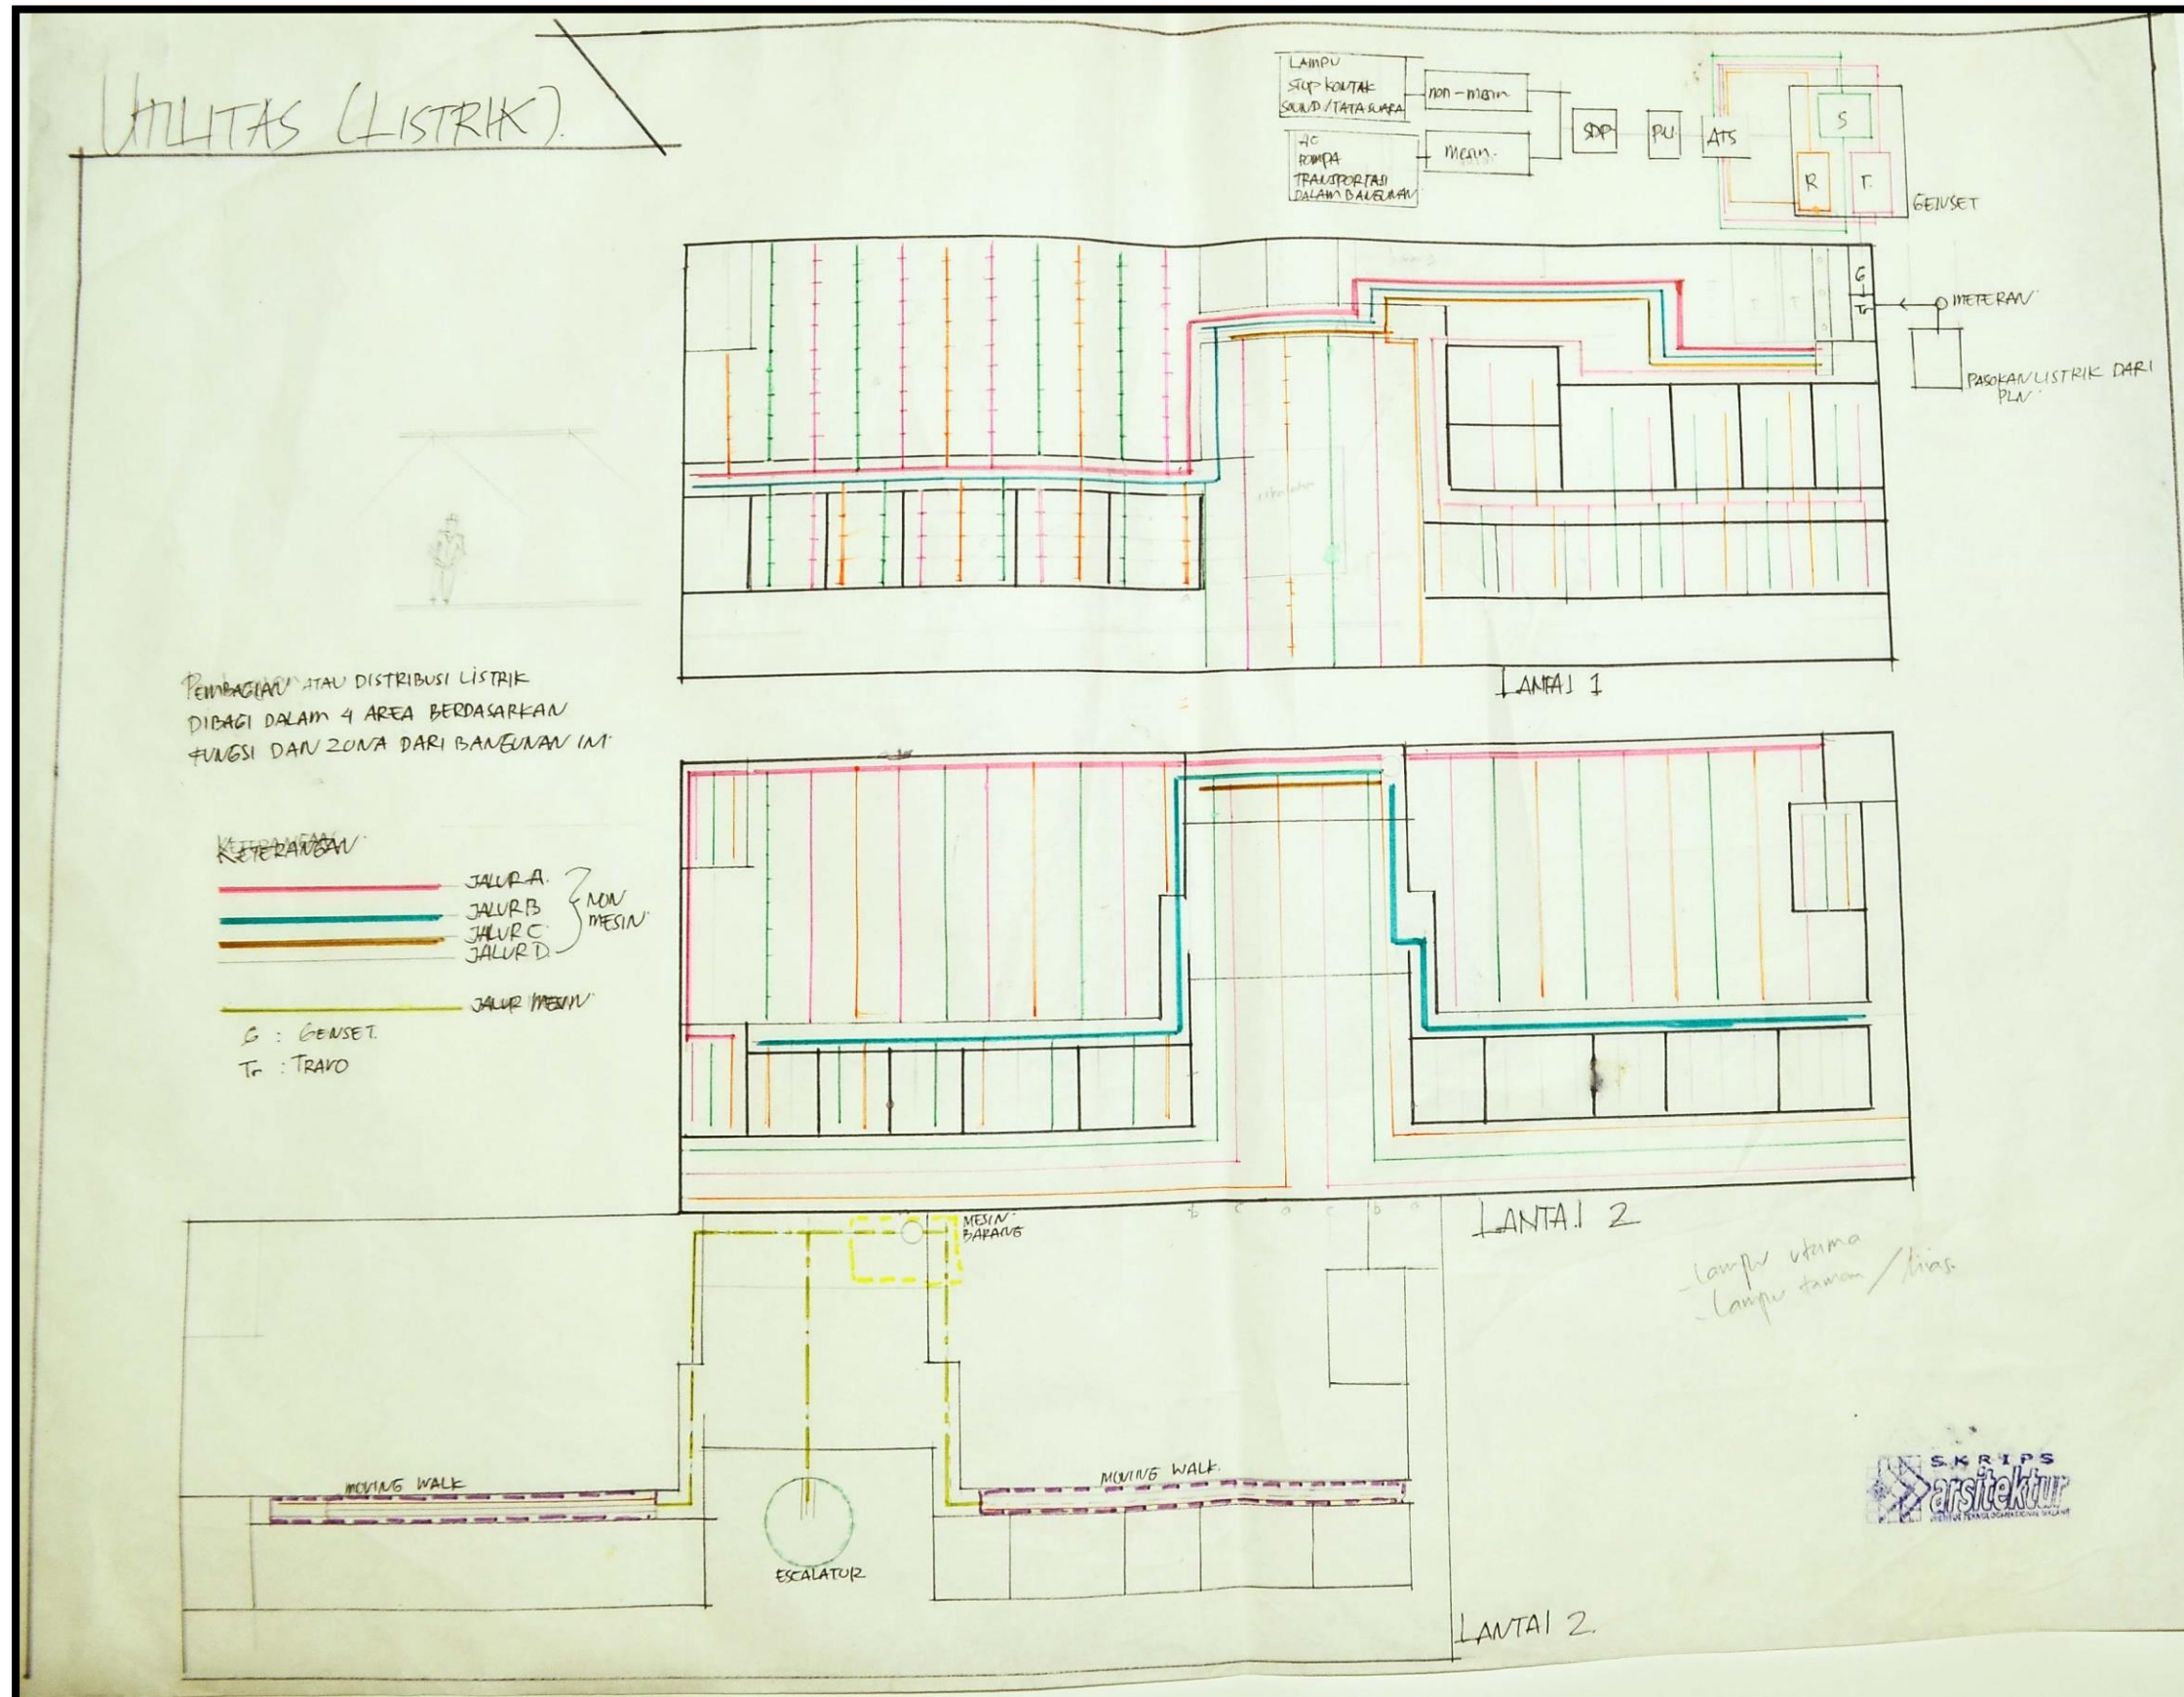 UTILITAS (LISTRIK).
LAMPU
STOP KONTAK
SOUND/TATA SUARA
non-mesin
AC
POMPA
TRANSPORTASI
DALAM BANGUNAN
mesin.
SDP
PU
ATS
S
R
T.
GENSET
G
Tr
METERAN
PASOKAN LISTRIK DARI
PLN
LANTAI 1
PEMBAGIAN ATAU DISTRIBUSI LISTRIK
DIBAGI DALAM 4 AREA BERDASARKAN
FUNGSI DAN ZONA DARI BANGUNAN INI.
KETERANGAN
JALUR A.
JALUR B
JALUR C.
JALUR D.
NON
MESIN
JALUR MESIN
G : GENSET.
Tr : TRAVO
LANTAI 2
MESIN
BARANG
- Lampu utama
- Lampu taman / hias.
MOVING WALK
MOVING WALK.
ESCALATOR
LANTAI 2.
SKRIPS
arsitektur